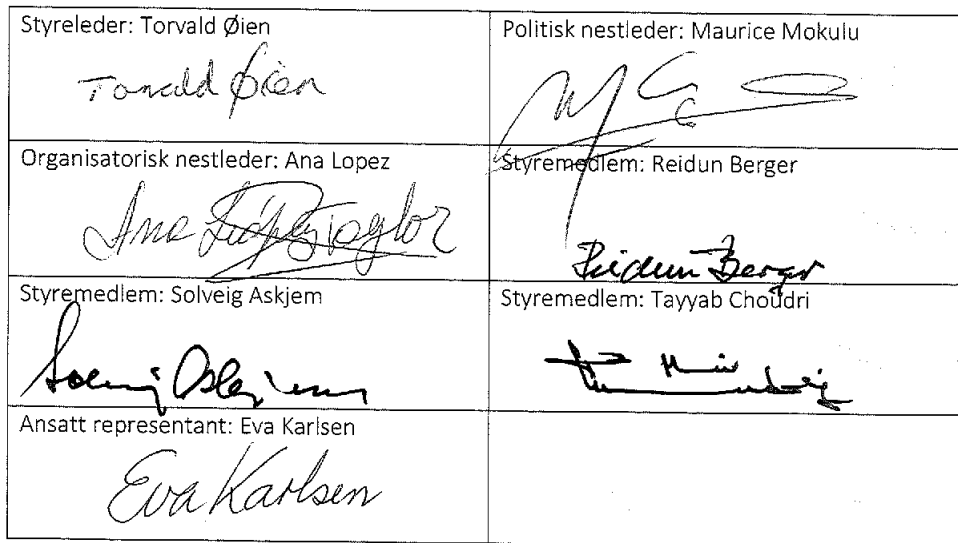 Styreleder: Torvald Øien
Torvald Øien
Politisk nestleder: Maurice Mokulu
Organisatorisk nestleder: Ana Lopez
Ana López Taylor
Styremedlem: Reidun Berger
Reidun Berger
Styremedlem: Solveig Askjem
Solveig Askjem
Styremedlem: Tayyab Choudri
Ansatt representant: Eva Karlsen
Eva Karlsen